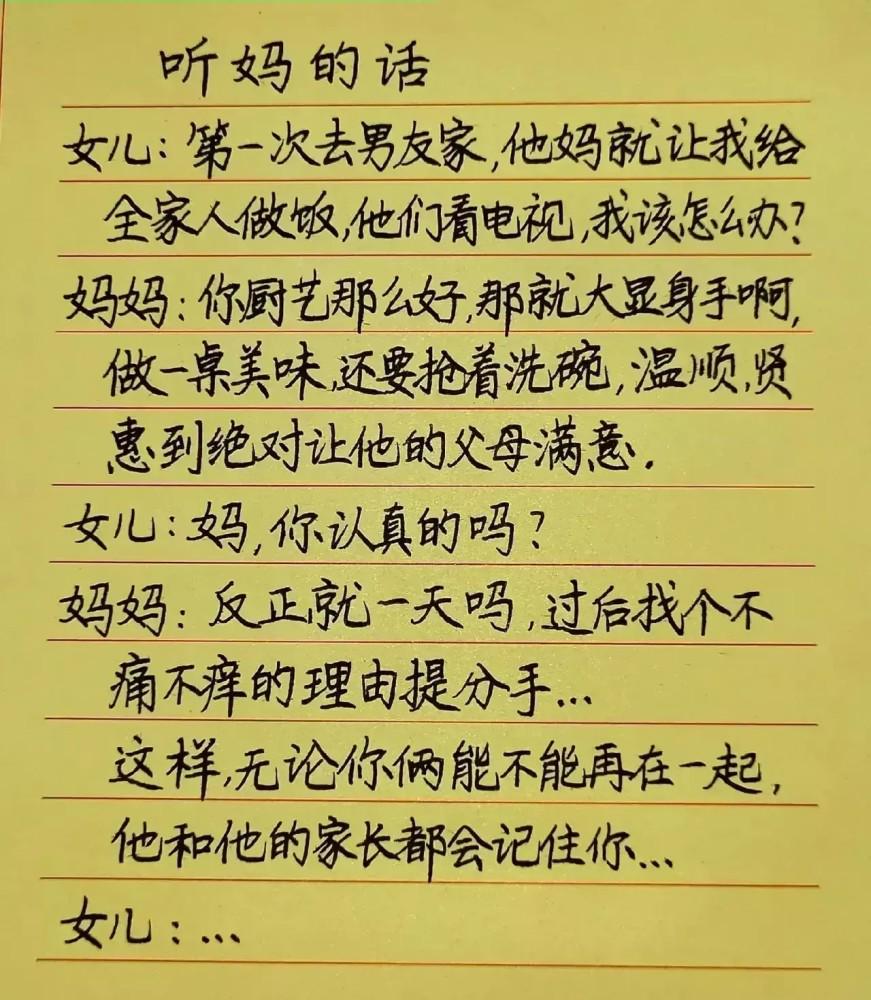 听妈的话
女儿：第一次去男友家,他妈就让我给
全家人做饭,他们看电视,我该怎么办?
妈妈：你厨艺那么好,那就大显身手啊,
做一桌美味,还要抢着洗碗,温顺,贤
惠到绝对让他的父母满意.
女儿：妈,你认真的吗?
妈妈：反正就一天吗,过后找个不
痛不痒的理由提分手...
这样,无论你俩能不能再在一起,
他和他的家长都会记住你...
女儿：...